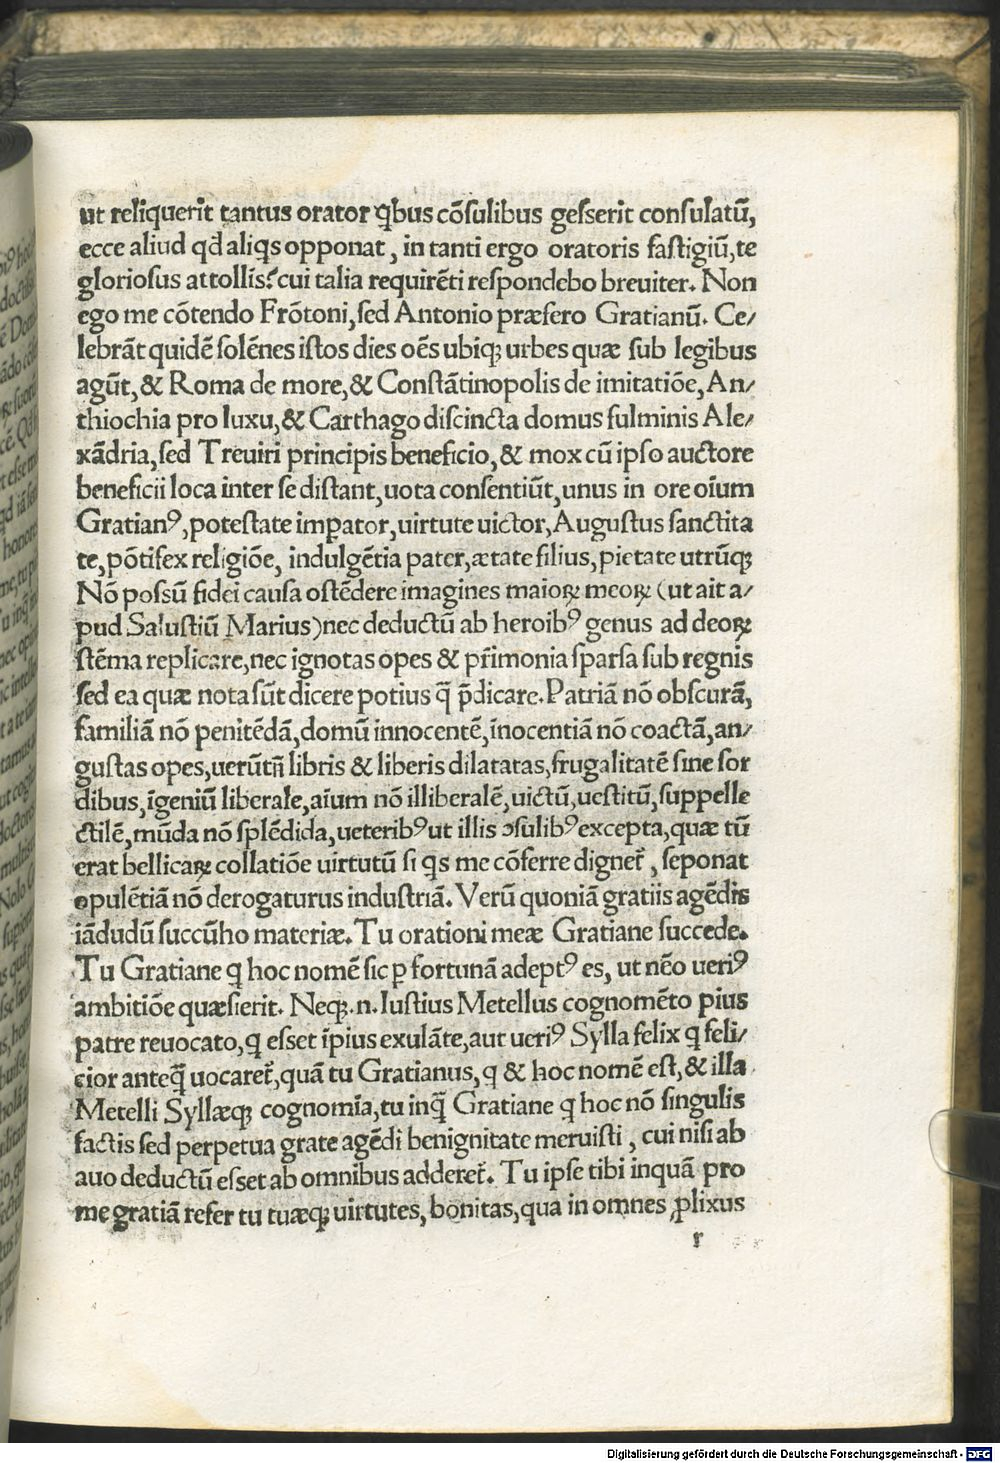 ut reliquerit tantus orator q̃bus cōſulibus geſſerit conſulatū,
ecce aliud qđ aliq̃s opponat, in tanti ergo oratoris faſtigiū, te
glorioſus attollis? cui talia requirēti reſpondebo breuiter. Non
ego me cōtendo Frōtoni, ſed Antonio præfero Gratianū. Ce/
lebrāt quidē ſolēnes iſtos dies oēs ubiqꝫ urbes quæ ſub legibus
agūt, & Roma de more, & Conſtātinopolis de imitatiōe, An/
thiochia pro luxu, & Carthago diſcincta domus fulminis Ale/
xādria, ſed Treuiri principis beneficio, & mox cū ipſo auctore
beneficii loca inter ſe diſtant, uota conſentiūt, unus in ore oīum
Gratianꝰ, poteſtate imꝑator, uirtute uictor, Auguſtus ſanctita
te, pōtifex religiōe, indulgētia pater, ætate filius, pietate utrūqꝫ
Nō poſſū fidei cauſa oſtēdere imagines maioꝝ meoꝝ (ut ait a/
pud Saluſtiū Marius) nec deductū ab heroibꝰ genus ad deoꝝ
ſtēma replicare, nec ignotas opes & pr̄imonia ſparſa ſub regnis
ſed ea quæ nota ſūt dicere potius q̃ p̄dicare. Patriā nō obſcurā,
familiā nō penitēdā, domū innocentē, īnocentiā nō coactā, an/
guſtas opes, uerūtn̄ libris & liberis dilatatas, frugalitatē ſine ſor
dibus, īgeniū liberale, aīum nō illiberalē, uictū, ueſtitū, ſuppelle
ctilē, mūda nō ſplēdida, ueteribꝰ ut illis ↄſulibꝰ excepta, quæ tū
erat bellicaꝝ collatiōe uirtutū ſi q̃s me cōferre dignet̄, ſeponat
opulētiā nō derogaturus induſtriā. Verū quoniā gratiis agēdis
iādudū ſuccūho materiæ. Tu orationi meæ Gratiane ſuccede.
Tu Gratiane q̨ hoc nomē ſic ꝑ fortunā adeptꝰ es, ut nēo ueriꝰ
ambitiōe quæſierit. Neqꝫ.n. Iuſtius Metellus cognomēto pius
patre reuocato, q̨ eſſet īpius exulāte, aut ueriꝰ Sylla felix q̨ feli/
cior anteq̃ uocaret̄, quā tu Gratianus, q̨ & hoc nomē eſt, & illa
Metelli Syllæqꝫ cognomīa, tu inq̃ Gratiane q̨ hoc nō ſingulis
factis ſed perpetua grate agēdi benignitate meruiſti, cui niſi ab
auo deductū eſſet ab omnibus adderet̄. Tu ipſe tibi inquā pro
me gratiā refer tu tuæqꝫ uirtutes, bonitas, qua in omnes ꝓlixus
r
Digitalisierung gefördert durch die Deutsche Forschungsgemeinschaft - DFG